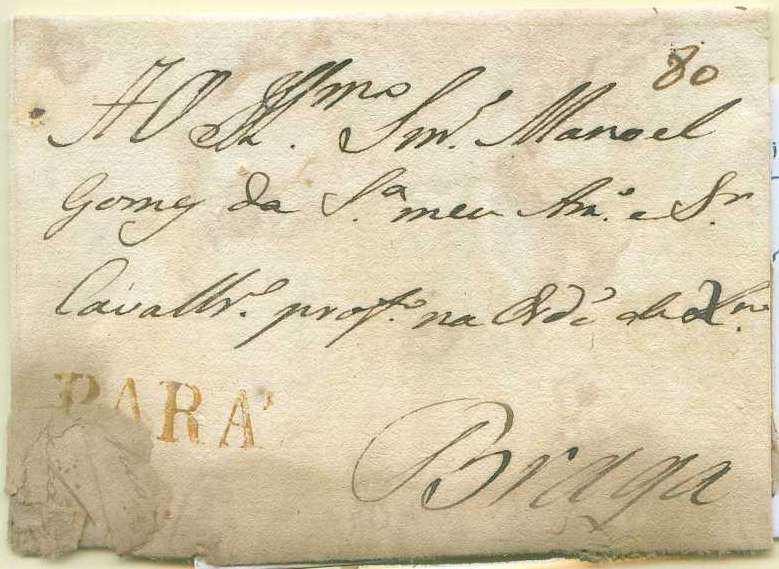 80
AO Illmo. Snr. Manoel
Gomes da S.ª meu Am.º e Sr.
Cavallr.º prof.º na Ord. de Xto.
PARA'
Braga